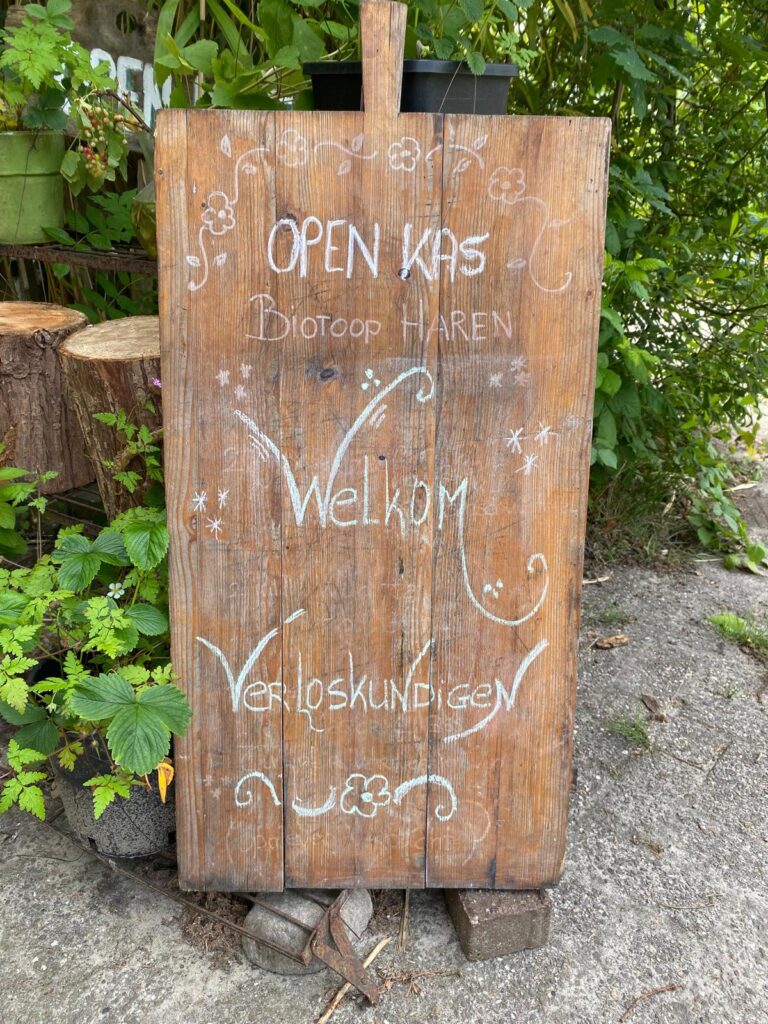 OPEN KAS
BIOTOOP HAREN
WELKOM
VERLOSKUNDIGEN